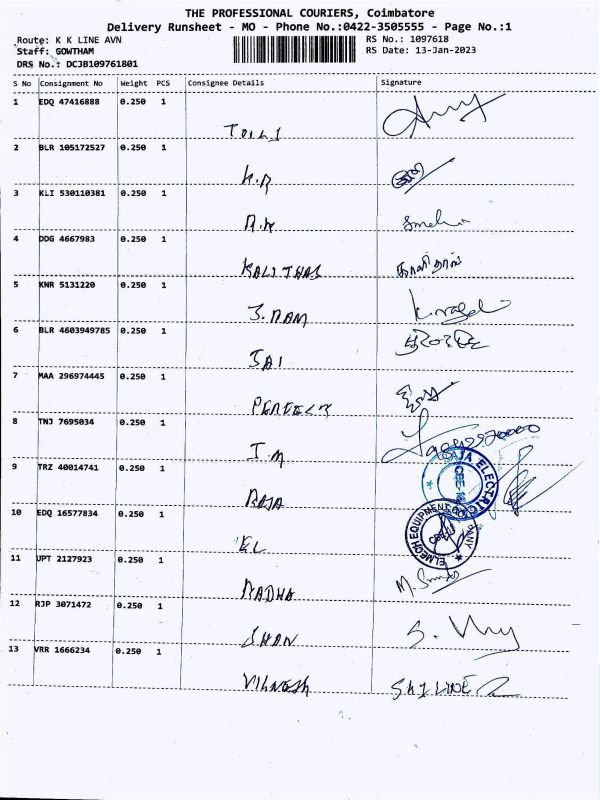 THE PROFESSIONAL COURIERS, Coimbatore
Delivery Runsheet - MO - Phone No.:0422-3505555 - Page No.:1
Route: K K LINE AVN
RS No.: 1097618
Staff: GOWTHAM
RS Date: 13-Jan-2023
DRS No.: DCJB109761801
S No Consignment No Weight PCS Consignee Details Signature
1 EDQ 47416888 0.250 1
2 BLR 105172527 0.250 1
K.R
3 KLI 530110381 0.250 1
4 DDG 4667983 0.250 1
KALITHAS காளிதாஸ்
5 KNR 5131220 0.250 1
J.RAM
6 BLR 4603949785 0.250 1
JAI
7 MAA 296974445 0.250 1
PERFECT
8 TNJ 7695034 0.250 1
I.M
9 TRZ 40014741 0.250 1
RAJA RAJA ELECTRIC
10 EDQ 16577834 0.250 1
EL ELMECH EQUIPMENT
11 UPT 2127923 0.250 1
RADHA
12 RJP 3071472 0.250 1
S. Vhy
13 VRR 1666234 0.250 1
VILNESH SKYLINE